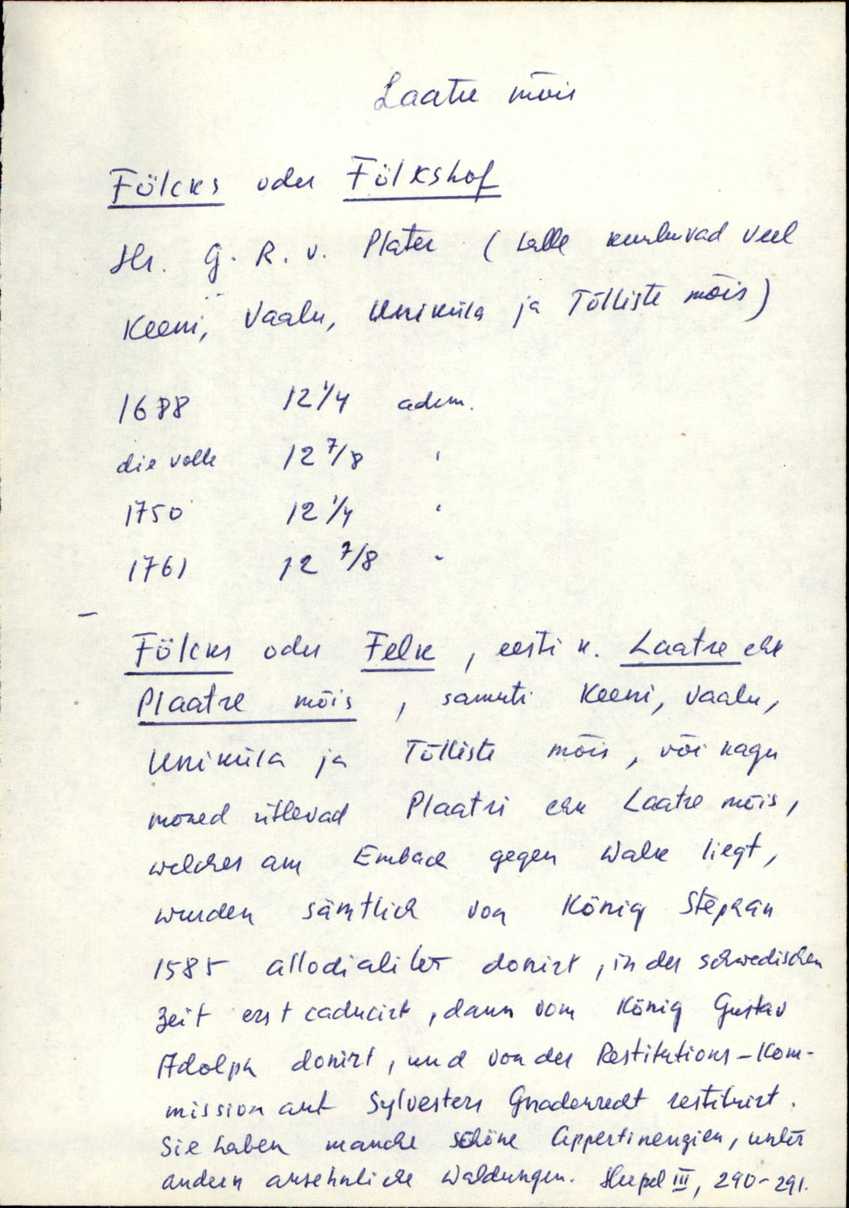 Laatre mõis
Fölcks oder Fölkshof
Hr. G. R. v. Plater (talle kuuluvad veel
Keeni, Vaalu, Uniküla ja Tõlliste mõis)
1688 12 1/4 adem.
die volle 12 7/8 "
1750 12 1/4 "
1761 12 7/8 "
– Fölcks oder Felk, eesti k. Laatre ehk
Plaatre mõis, samuti Keeni, Vaalu,
Uniküla ja Tõlliste mõis, või nagu
mõned ütlevad Plaatri ehk Laatre mõis,
welches am Embach gegen Walk liegt,
wurden sämtlich von König Stephan
1585 allodialiter donirt, in der schwedischen
Zeit erst caducirt, dann vom König Gustav
Adolph donirt, und von der Restitutions-Kom-
mission auf Sylvesters Gnadenrecht restituirt.
Sie haben manche schöne Appertinenzien, unter
andern ansehnliche Waldungen. Hupel III, 290-291.